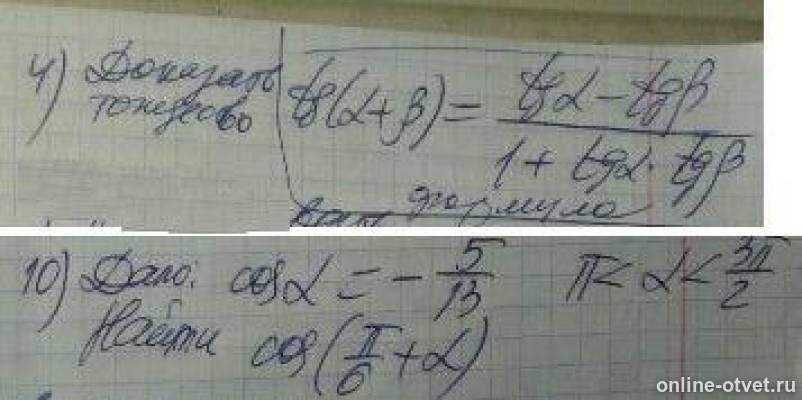 4) Доказать тождество
tg(α+β) = (tgα − tgβ) / (1 + tgα · tgβ)
формула
10) Дано: cosα = − 5/13   π < α < 3π/2
Найти cos(π/6 + α)
online-otvet.ru